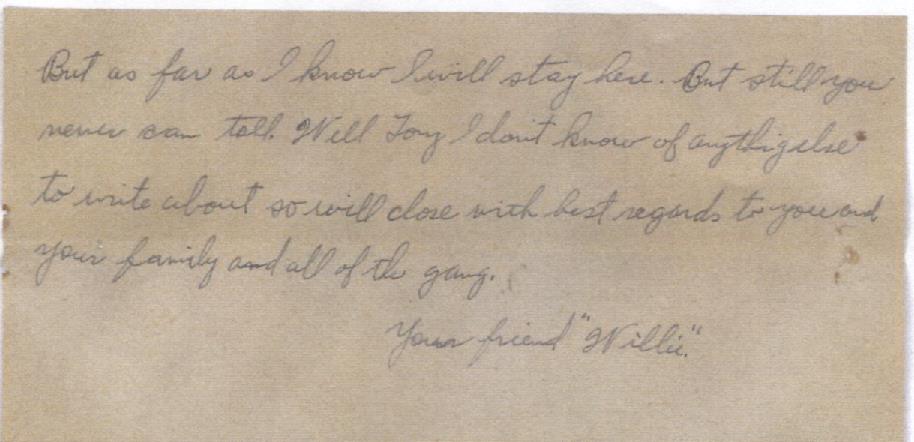 But as far as I know I will stay here. But still you
never can tell. Well Tony I don't know of anythig else
to write about so will close with best regards to you and
your family and all of the gang.
Your friend "Willie".